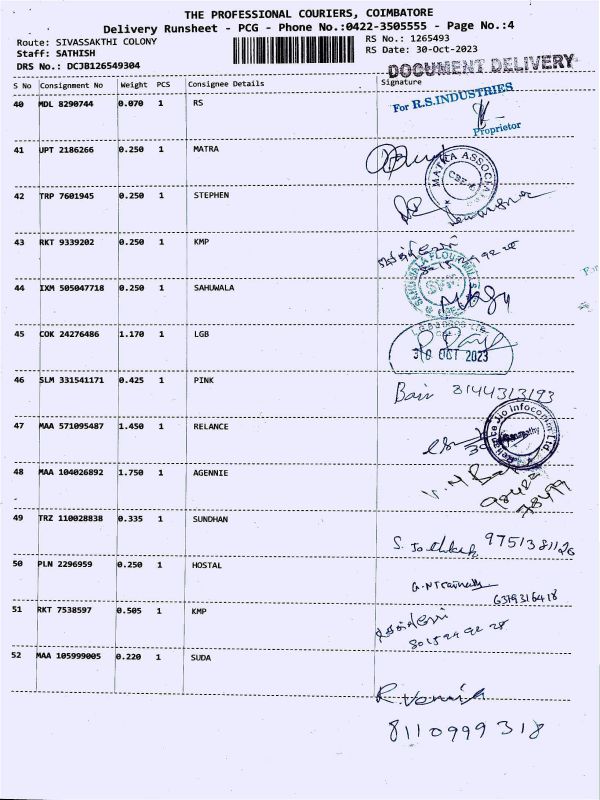 THE PROFESSIONAL COURIERS, COIMBATORE
Delivery Runsheet - PCG - Phone No.:0422-3505555 - Page No.:4
Route: SIVASSAKTHI COLONY RS No.: 1265493
Staff: SATHISH RS Date: 30-Oct-2023
DRS No.: DCJB126549304
DOCUMENT DELIVERY
S No Consignment No Weight PCS Consignee Details Signature
40 MDL 8290744 0.070 1 RS
For R.S.INDUSTRIES
Proprietor
41 UPT 2186266 0.250 1 MATRA
MATRA ASSOCIA
CBE
42 TRP 7601945 0.250 1 STEPHEN
43 RKT 9339202 0.250 1 KMP
44 IXM 505047718 0.250 1 SAHUWALA
45 COK 24276486 1.170 1 LGB
30 OCT 2023
46 SLM 331541171 0.425 1 PINK
3144313193
47 MAA 571095487 1.450 1 RELANCE
Reliance Jio Infocomm Ltd.
48 MAA 104026892 1.750 1 AGENNIE
49 TRZ 110028838 0.335 1 SUNDHAN
9751381126
50 PLN 2296959 0.250 1 HOSTAL
6379316418
51 RKT 7538597 0.505 1 KMP
52 MAA 105999005 0.220 1 SUDA
8110999318